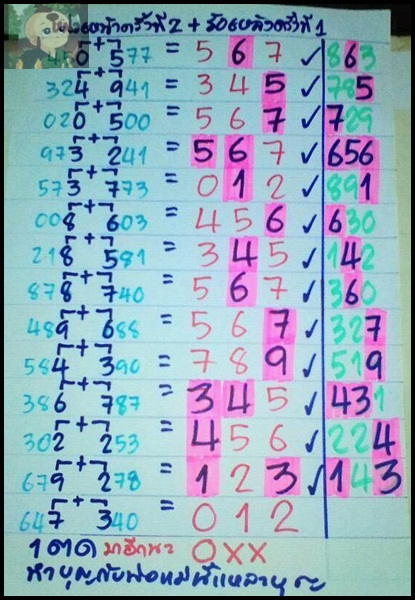 ครั้งที่ 2 + ครั้งที่ 1
450 + 577 = 5 6 7 ✓ 863
324 + 941 = 3 4 5 ✓ 785
020 + 500 = 5 6 7 ✓ 729
973 + 241 = 5 6 7 ✓ 656
573 + 773 = 0 1 2 ✓ 891
008 + 603 = 4 5 6 ✓ 630
218 + 581 = 3 4 5 ✓ 142
878 + 740 = 5 6 7 ✓ 360
489 + 688 = 5 6 7 ✓ 327
584 + 390 = 7 8 9 ✓ 519
386 + 787 = 3 4 5 ✓ 431
302 + 253 = 4 5 6 ✓ 224
679 + 278 = 1 2 3 ✓ 143
647 + 340 = 0 1 2
0xx
ทำบุญกับพ่อแม่